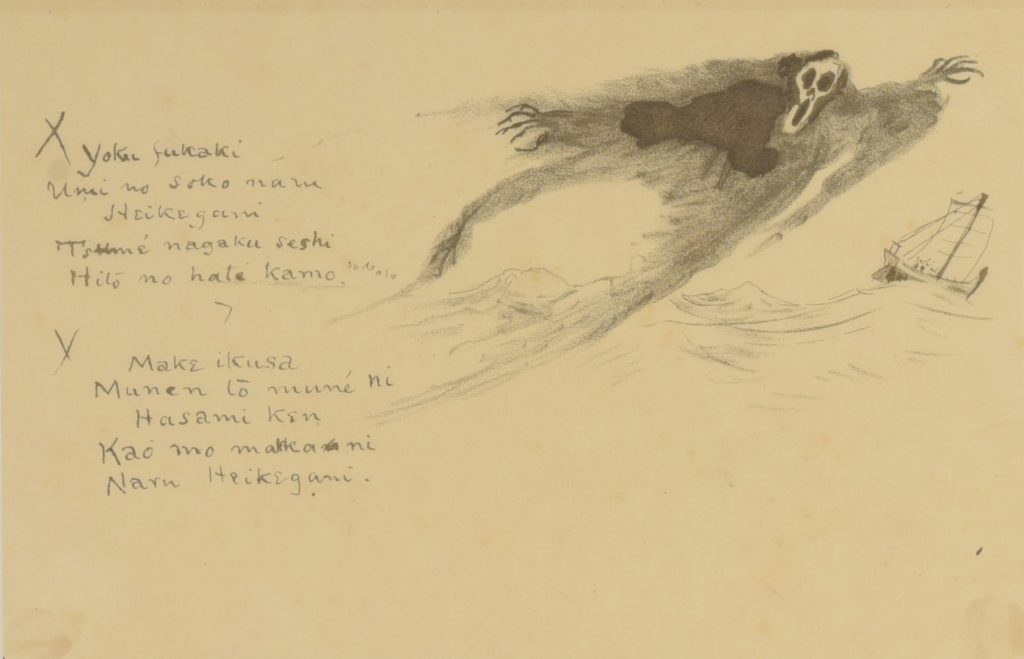 X Yoku fukaki
Umi no soko naru
Heikegani
Tsumé nagaku seshi
Hito no haté kamo.
X Make ikusa
Munen to muné ni
Hasami ken
Kao mo makka ni
Naru Heikegani.